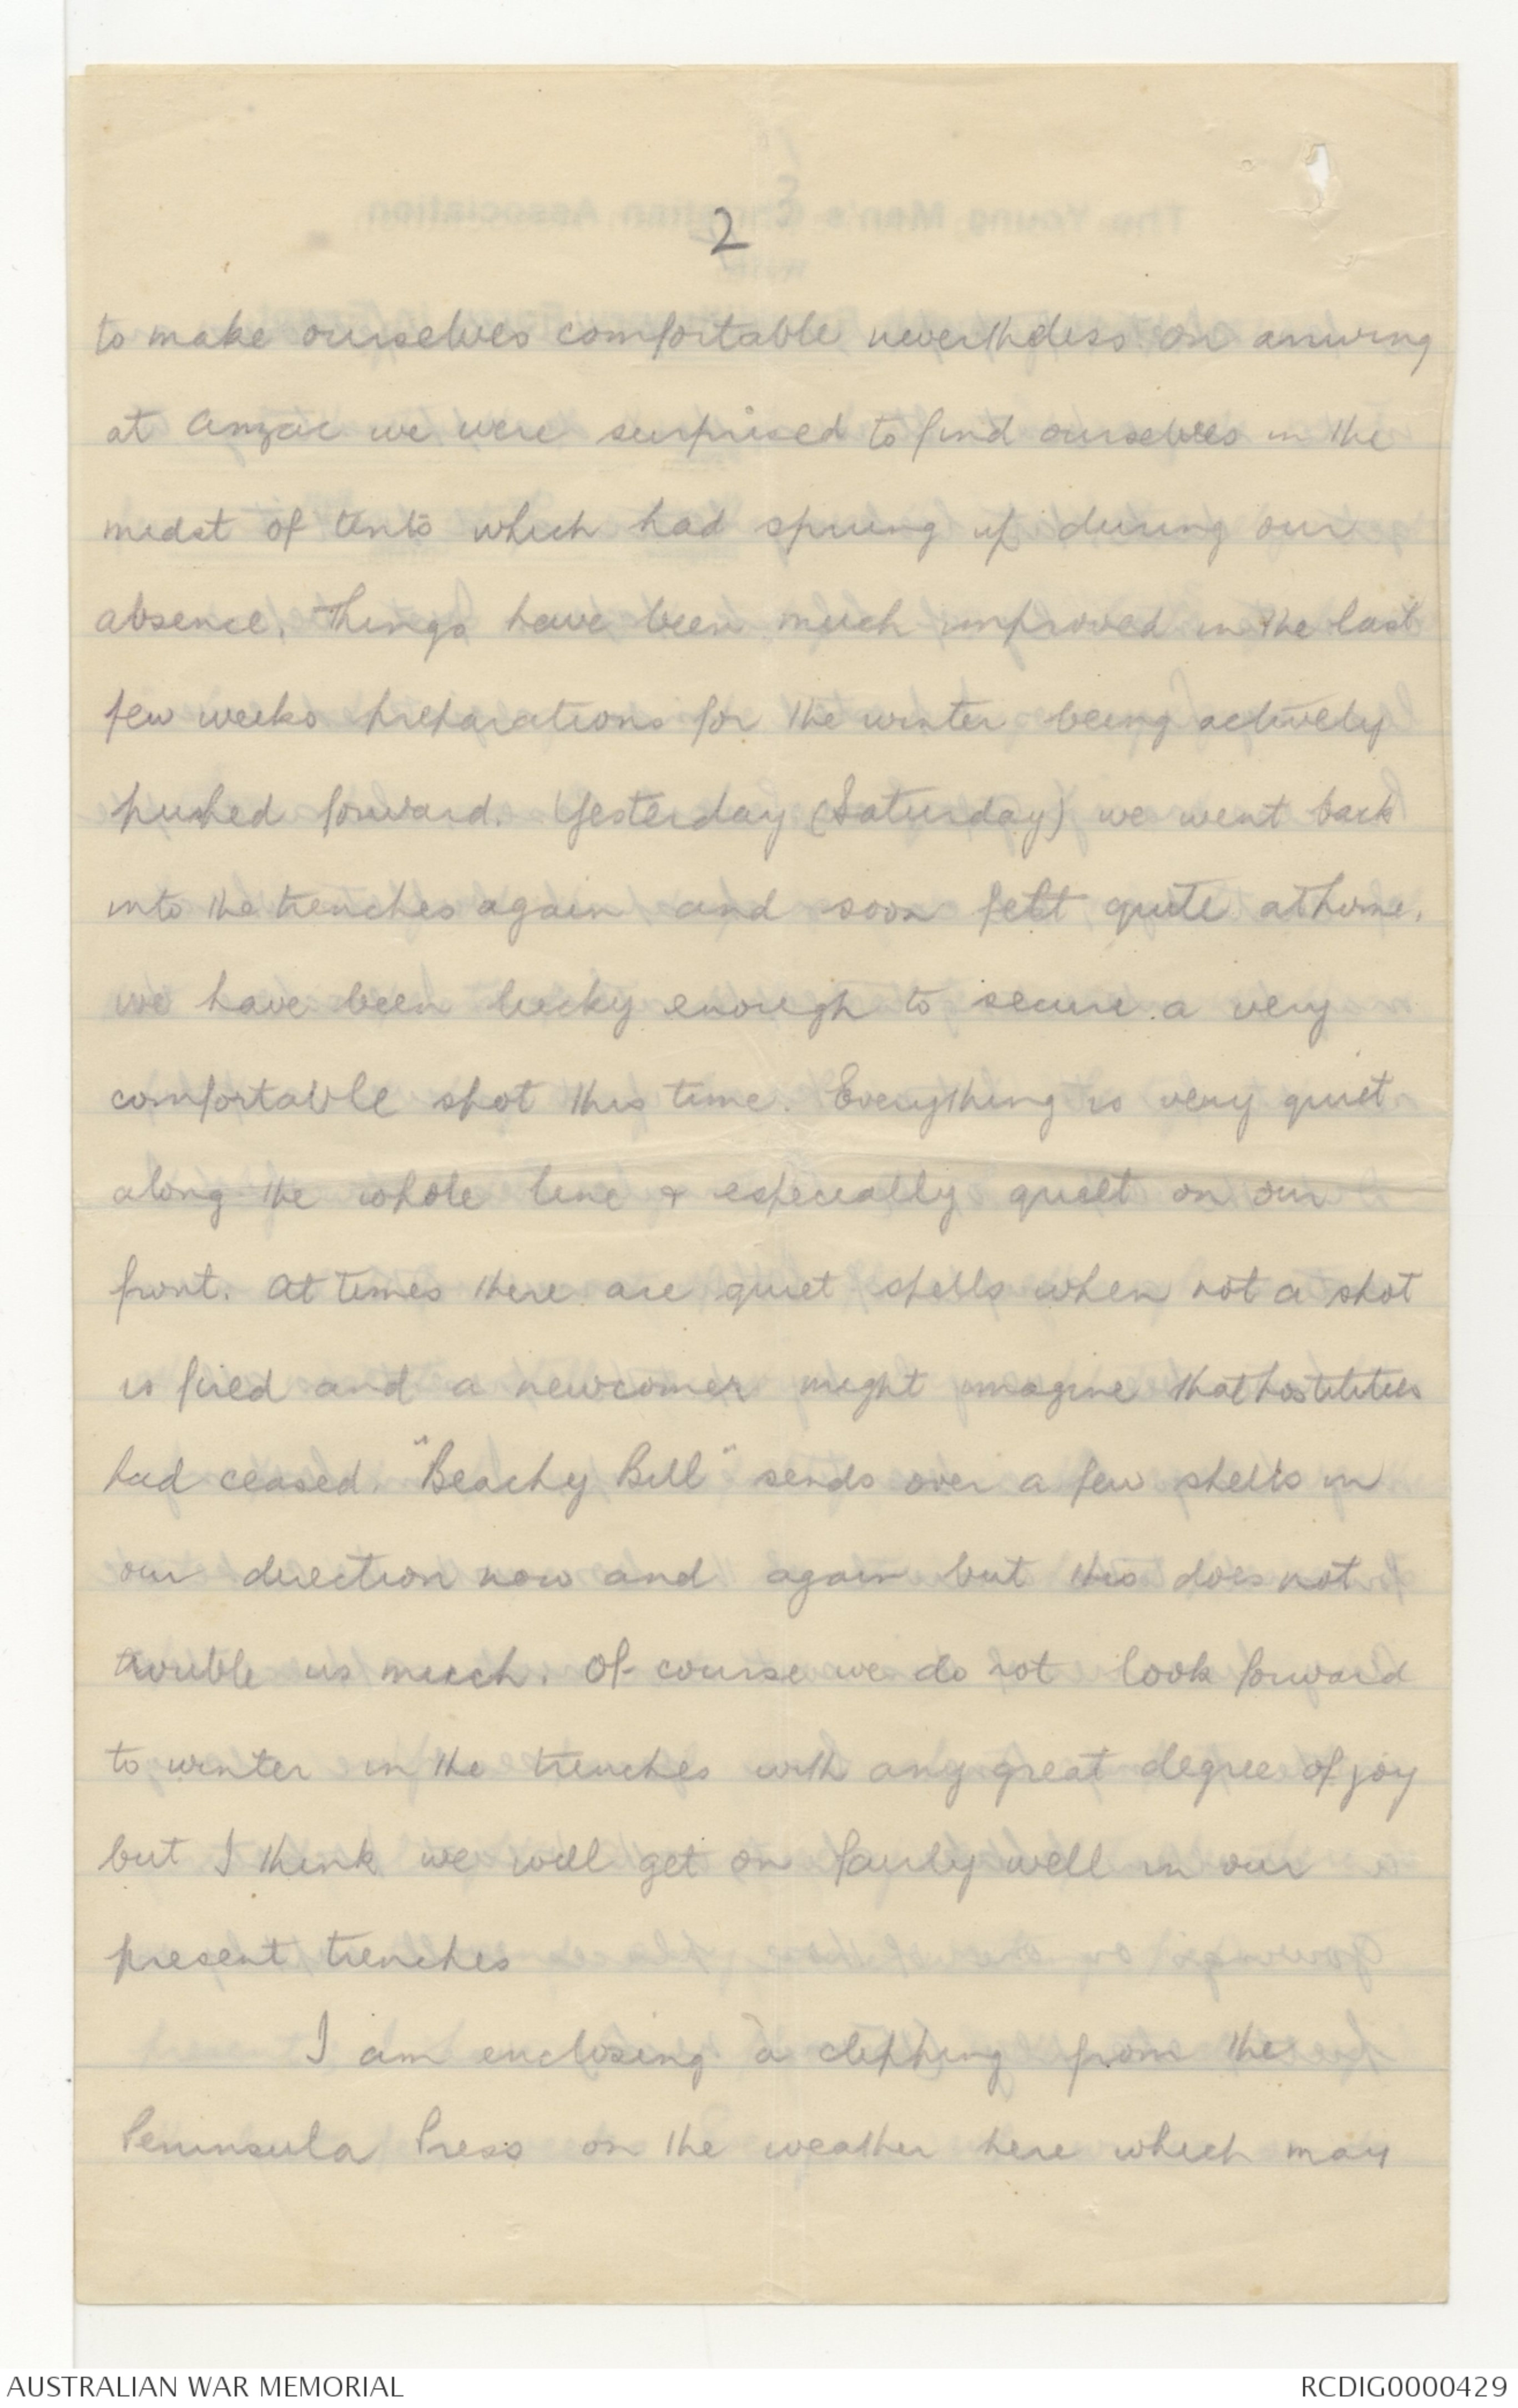 2
to make ourselves comfortable nevertheless on arriving
at Anzac we were surprised to find ourselves in the
midst of tents which had sprung up during our
absence. Things have been much improved in the last
few weeks preparations for the winter being actively
pushed forward. Yesterday (Saturday) we went back
into the trenches again and soon felt quite at home.
we have been lucky enough to secure a very
comfortable spot this time. Everything is very quiet
along the whole line & especially quiet on our
front. At times there are quiet spells when not a shot
is fired and a newcomer might imagine that hostilities
had ceased. "Beachy Bill" sends over a few shells in
our direction now and again but this does not
trouble us much. Of course we do not look forward
to winter in the trenches with any great degree of joy
but I think we will get on fairly well in our
present trenches
I am enclosing a clipping from the
Peninsula Press on the weather here which may
AUSTRALIAN WAR MEMORIAL
RCDIG0000429